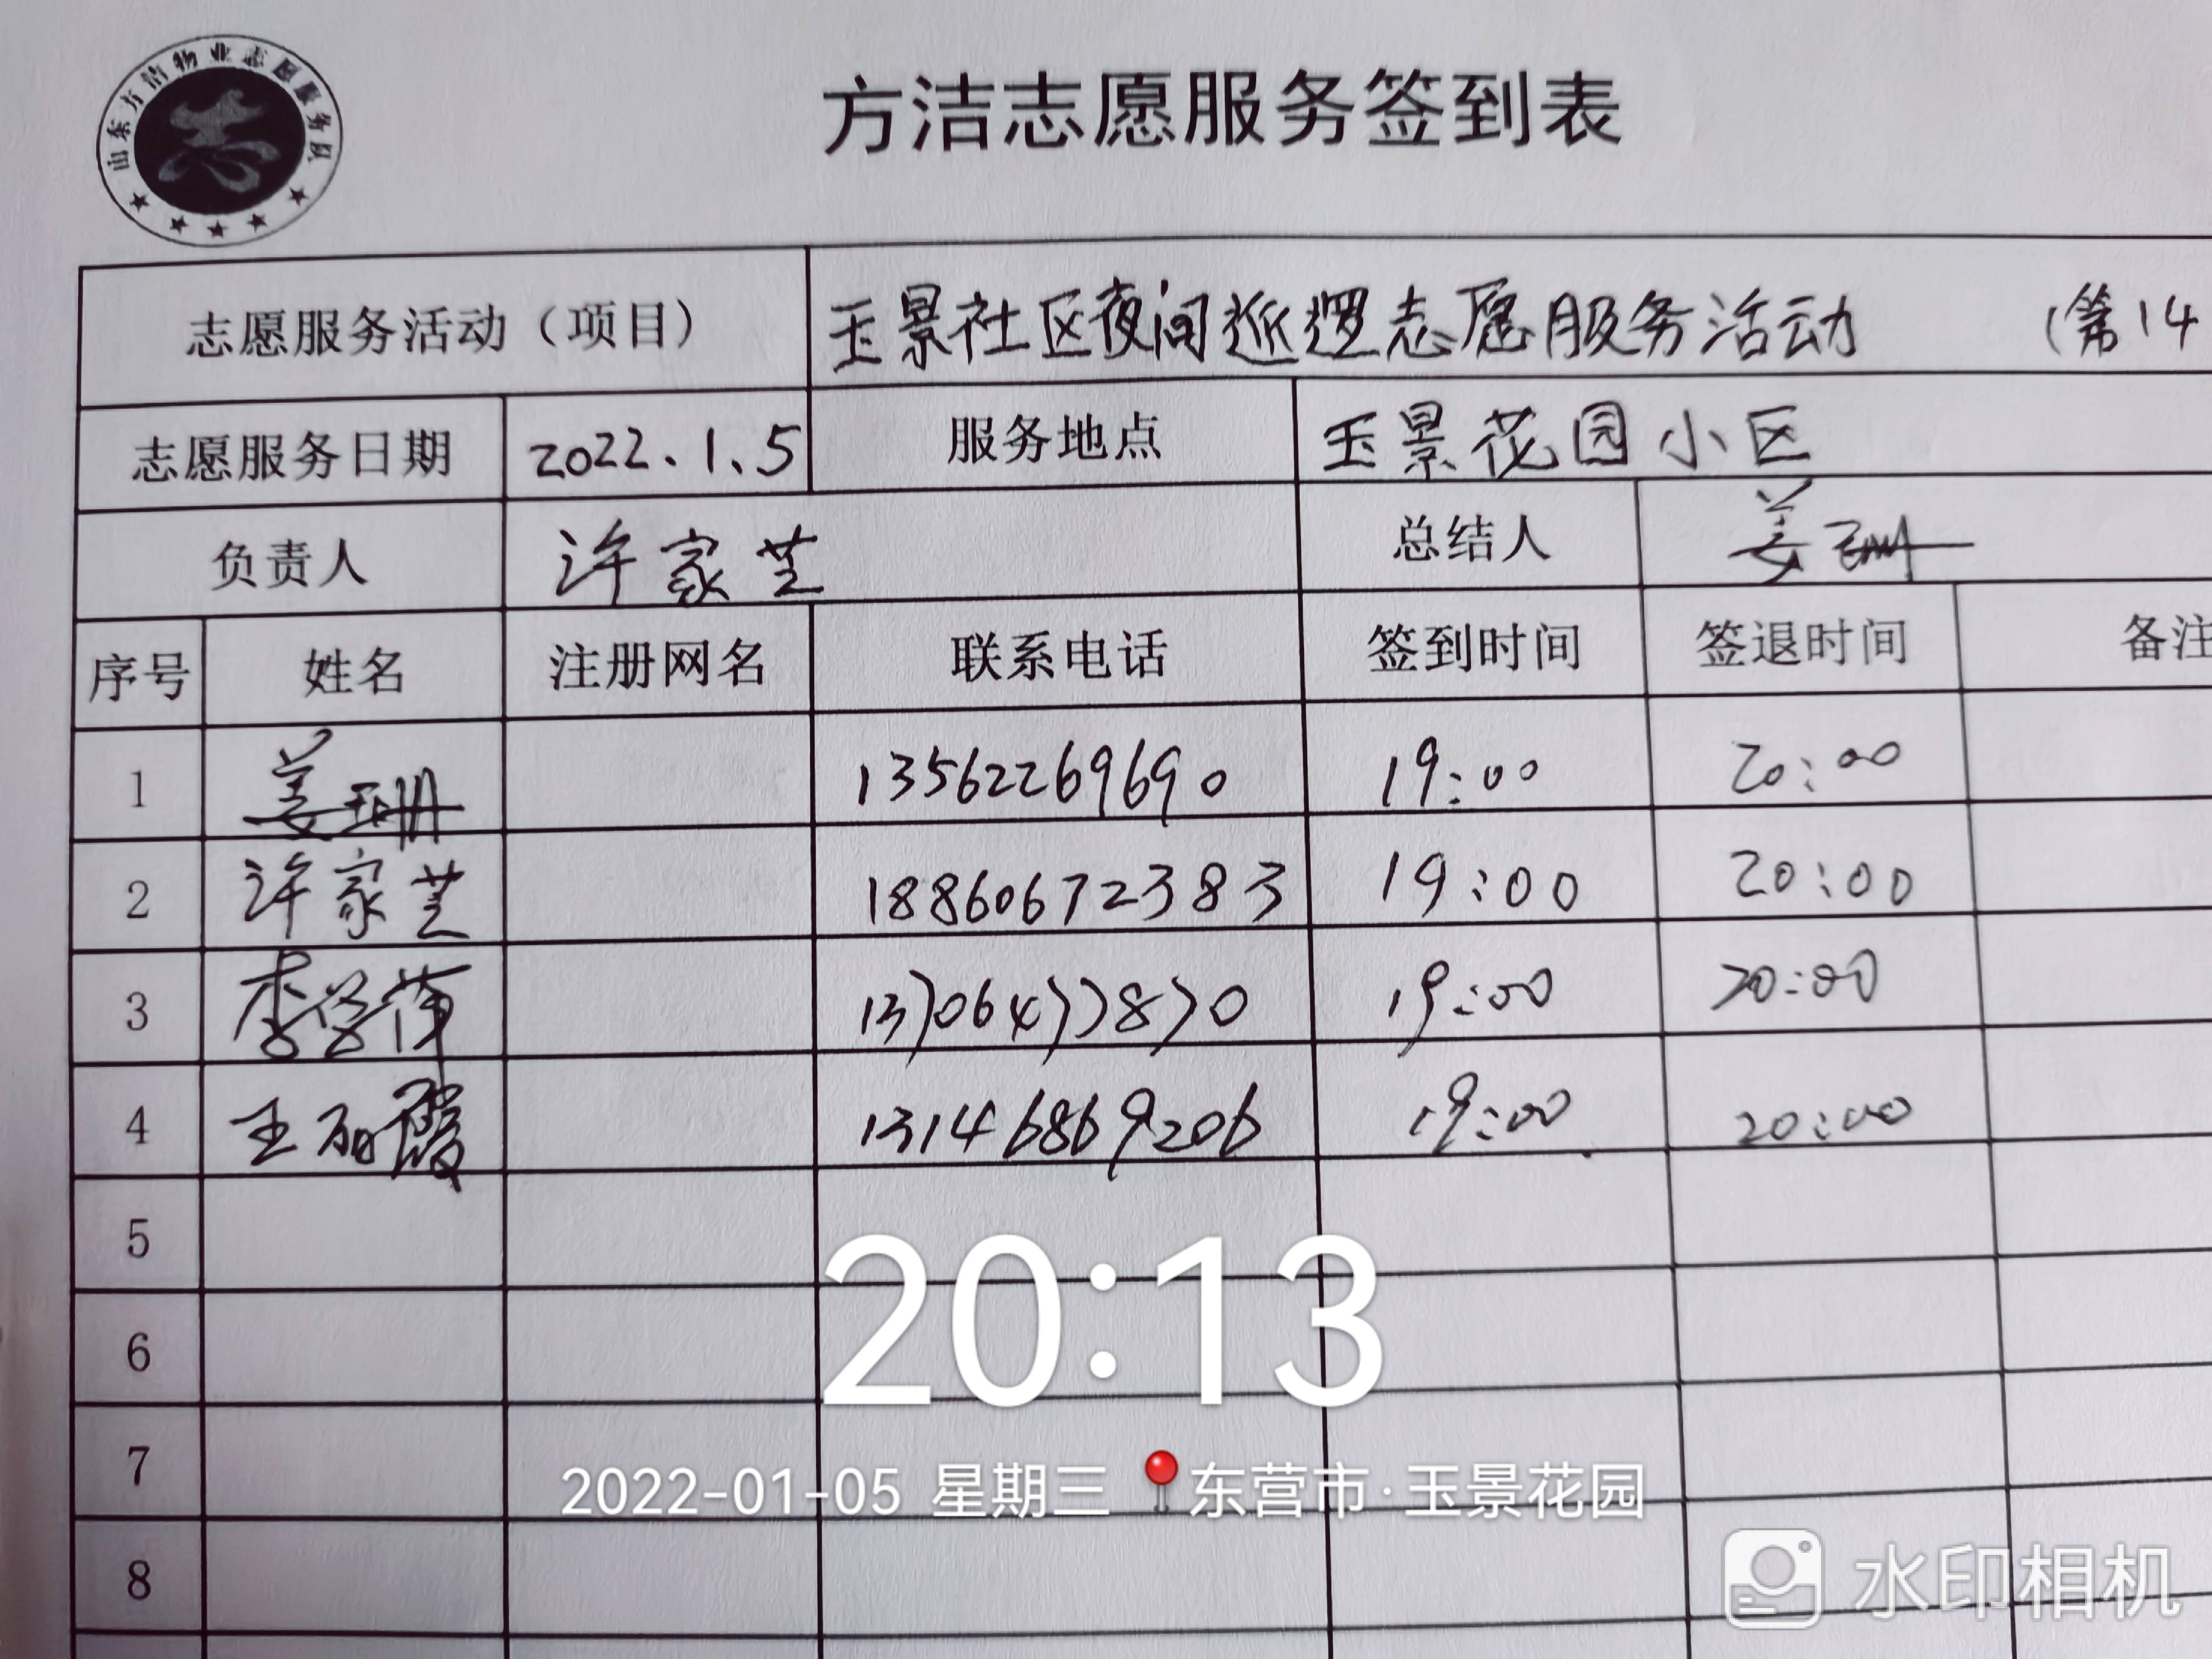 山东方洁物业志愿服务队
方洁志愿服务签到表
志愿服务活动（项目） 玉景社区夜间巡逻志愿服务活动 （第14
志愿服务日期 2022.1.5 服务地点 玉景花园小区
负责人 许家芝 总结人 姜珊
序号 姓名 注册网名 联系电话 签到时间 签退时间 备注
1 姜珊 13562269690 19:00 20:00
2 许家芝 18860672383 19:00 20:00
3 李学萍 13706477870 19:00 20:00
4 王丽霞 13146869206 19:00 20:00
5
6
20:13
7
2022-01-05 星期三 东营市·玉景花园
8
水印相机